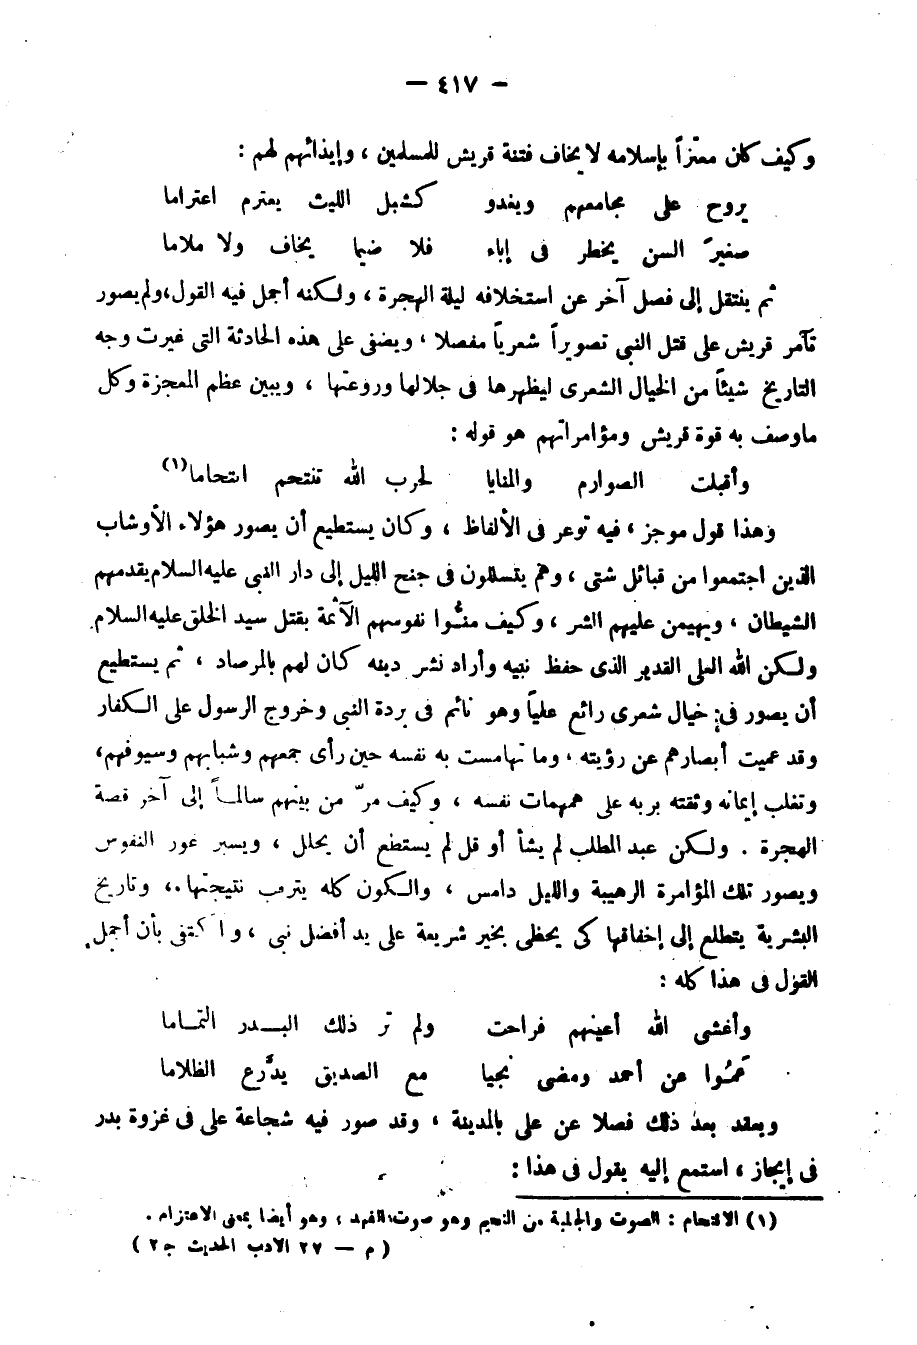 — ٤١٧ —
وكيف كان معتزاً بإسلامه لا يخاف فتنة قريش للمسلمين ، وإيذائهم لهم :
يروح على مجامعهم ويغدو كشبل الليث يعترم اعتراما
صغيرَ السن يخطر فى إباء فلا ضيما يخاف ولا ملاما
ثم ينتقل إلى فصل آخر عن استخلافه ليلة الهجرة ، ولكنه أجمل فيه القول، ولم يصور
تآمر قريش على قتل النبى تصويراً شعرياً مفصلا ، ويضفى على هذه الحادثة التى غيرت وجه
التاريخ شيئاً من الخيال الشعرى ليظهرها فى جلالها وروعتها ، ويبين عظم المعجزة وكل
ماوصف به قوة قريش ومؤامراتهم هو قوله :
وأقبلت الصوارم والمنايا لحرب الله تنتحم انتحاما(١)
وهذا قول موجز ، فيه توعر فى الألفاظ ، وكان يستطيع أن يصور هؤلاء الأوشاب
الذين اجتمعوا من قبائل شتى ، وهم يتسللون فى جنح الليل إلى دار النبى عليه السلام يقدمهم
الشيطان ، ويهيمن عليهم الشر ، وكيف منُّوا نفوسهم الآثمة بقتل سيد الخلق عليه السلام
ولكن الله العلى القدير الذى حفظ نبيه وأراد نشر دينه كان لهم بالمرصاد ، ثم يستطيع
أن يصور فى خيال شعرى رائع علياً وهو نائم فى بردة النبى وخروج الرسول على الكفار
وقد عميت أبصارهم عن رؤيته ، وما تهامست به نفسه حين رأى جمعهم وشبابهم وسيوفهم،
وتغلب إيمانه وثقته بربه على همهمات نفسه ، وكيف مرّ من بينهم سالمـاً إلى آخر قصة
الهجرة . ولكن عبد المطلب لم يشأ أو قل لم يستطع أن يحلل ، ويسبر غور النفوس
ويصور تلك المؤامرة الرهيبة والليل دامس ، والكون كله يترقب نتيجتها ، وتاريخ
البشرية يتطلع إلى إخفاقها كى يحظى بخير شريعة على يد أفضل نبى ، واكتفى بأن أجمل
القول فى هذا كله :
وأغشى الله أعينهم فراحت ولم تر ذلك البــدر التمــاما
عَمُوا عن أحمد ومضى نجيا مع الصديق يدَّرع الظلاما
ويعقد بعد ذلك فصلا عن على بالمدينة ، وقد صور فيه شجاعة على فى غزوة بدر
فى إيجاز ، استمع إليه يقول فى هذا :
(١) الانتحام : الصوت والجلبة من النحيم وهو صوت الفهد ، وهو أيضا بمعنى الاعتزام .
( م — ٢٧ الأدب الحديث ج٢ )